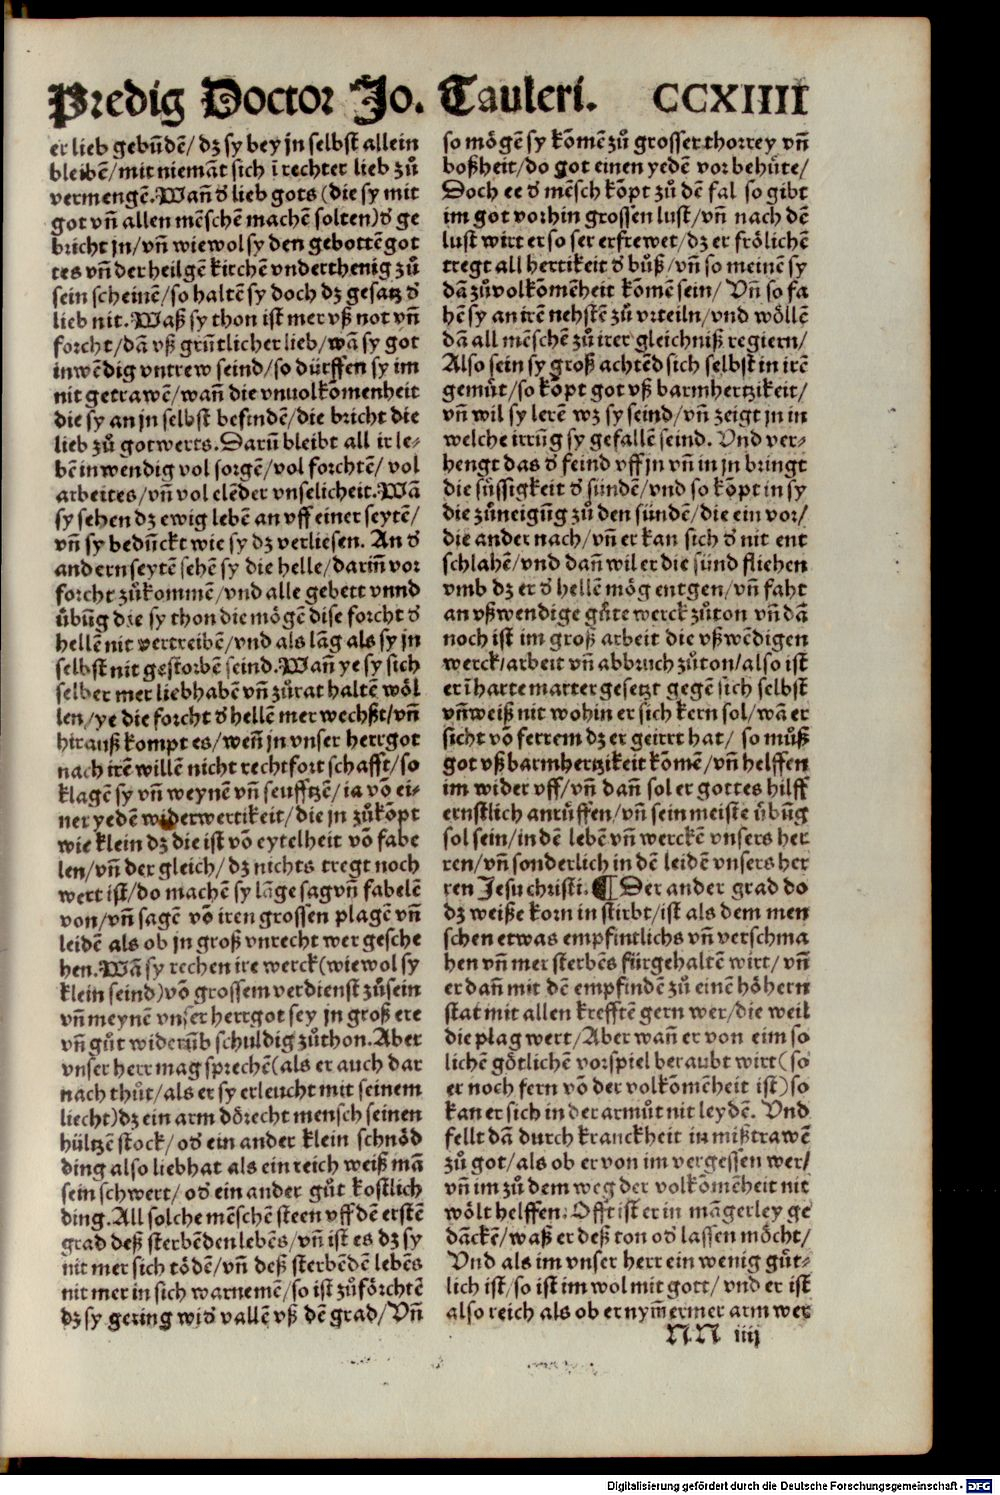 Predig Doctor Jo. Tauleri. CCXIIII
er lieb gebūdē/ dz sy bey jn selbst allein
bleibē/ mit niemāt sich ī rechter lieb zů
vermengē. Wañ ð lieb gots (die sy mit
got vñ allen mēschē machē solten) ð ge
bricht jn/ vñ wiewol sy den gebottē got
tes vñ der heilgē kirchē vnderthenig zů
sein scheinē/ so haltē sy doch dz gesatz ð
lieb nit. Waß sy thon ist mer vß not vñ
forcht/ dā vß grūtlicher lieb/ wā sy got
inwēdig vntrew seind/ so dürffen sy im
nit getrawē/ wañ die vnuolkōmenheit
die sy an jn selbst befindē/ die bricht die
lieb zů gotwerts. Darū bleibt all ir le-
bē inwendig vol sorgē/ vol forchtē/ vol
arbeites/ vñ vol elēder vnselicheit. Wā
sy sehen dz ewig lebē an vff einer seytē/
vñ sy bedūckt wie sy dz verliesen. An ð
andern seytē sehē sy die helle/ dariñ vor
forcht zůkommē/ vnd alle gebett vnnd
übūg die sy thon die mögē dise forcht ð
hellē nit vertreibē/ vnd als lāg als sy jn
selbst nit gestorbē seind. Wañ ye sy sich
selber mer liebhabē vñ zůrat haltē wöl
len/ ye die forcht ð hellē mer wechßt/ vñ
hirauß kompt es/ weñ jn vnser herrgot
nach irē willē nicht rechtfort schafft/ so
klagē sy vñ weynē vñ seufftzē/ ia vō ei-
ner yedē widerwertikeit/ die jn zůkōpt
wie klein dz die ist vō eytelheit vō fabe
len/ vñ der gleich/ dz nichts tregt noch
wert ist/ do machē sy lāge sag vñ fabelē
von/ vñ sagē vō iren grossen plagē vñ
leidē als ob jn groß vnrecht wer gesche
hen. Wā sy rechen ire werck (wiewol sy
klein seind) vō grossem verdienst zůsein
vñ meynē vnser herrgot sey jn groß ere
vñ gůt widerūb schuldig zůthon. Aber
vnser herr mag sprechē (als er auch dar
nach thůt/ als er sy erleucht mit seinem
liecht) dz ein arm dörecht mensch seinen
hültzē stock/ oð ein ander klein schnöd
ding also liebhat als ein reich weiß mā
sein schwert/ oð ein ander gůt kostlich
ding. All solche mēschē steen vff dē erstē
grad deß sterbēden lebēs/ vñ ist es dz sy
nit mer sich tödē/ vñ deß sterbēdē lebēs
nit mer in sich warnemē/ so ist zůförchtē
dz sy gering wið vallē vß dē grad/ Vñ
so mögē sy kōmē zů grosser thorrey vñ
boßheit/ do got einen yedē vor behüte/
Doch ee ð mēsch kōpt zů dē fal so gibt
im got vorhin grossen lust/ vñ nach dē
lust wirt er so ser erfrewet/ dz er frölichē
tregt all hertikeit ð bůß/ vñ so meinē sy
dā zůvolkōmēheit kōmē sein/ Vñ so fa
hē sy an irē nehstē zů vrteiln/ vnd wöllē
dā all mēschē zů irer gleichniß regiern/
Also sein sy groß achtēd sich selbst in irē
gemůt/ so kōpt got vß barmhertzikeit/
vñ wil sy lerē wz sy seind/ vñ zeigt jn in
welche irrūg sy gefallē seind. Vnd ver-
hengt das ð feind vff jn vñ in jn bringt
die süssigkeit ð sündē/ vnd so kōpt in sy
die zůneigūg zů den sündē/ die ein vor/
die ander nach/ vñ er kan sich ð nit ent
schlahē/ vnd dañ wil er die sünd fliehen
vmb dz er ð hellē mög entgen/ vñ faht
an vßwendige gůte werck zůton vñ dā
noch ist im groß arbeit die vßwēdigen
werck/ arbeit vñ abbruch zůton/ also ist
er ī harte marter gesetzt gegē sich selbst
vñ weiß nit wohin er sich kern sol/ wā er
sicht vō ferrem dz er geirrt hat/ so můß
got vß barmhertzikeit kōmē/ vñ helffen
im wider vff/ vñ dañ sol er gottes hilff
ernstlich anrůffen/ vñ sein meiste übūg
sol sein/ in dē lebē vñ werckē vnsers her
ren/ vñ sonderlich in dē leidē vnsers her
ren Jesu christi. ¶ Der ander grad do
dz weiße korn in stirbt/ ist als dem men
schen etwas empfintlichs vñ verschma
hen vñ mer sterbēs fürgehaltē wirt/ vñ
er dañ mit dē empfindē zů einē höhern
stat mit allen krefftē gern wer/ die weil
die plag wert/ Aber wañ er von eim so
lichē götlichē vorspiel beraubt wirt (so
er noch fern vō der volkōmēheit ist) so
kan er sich in der armůt nit leydē. Vnd
fellt dā durch kranckheit in mißtrawē
zů got/ als ob er von im vergessen wer/
vñ im zů dem weg der volkōmēheit nit
wölt helffen. Offt ist er in māgerley ge
dāckē/ waß er deß ton oð lassen möcht/
Vnd als im vnser herr ein wenig güt-
lich ist/ so ist im wol mit gott/ vnd er ist
also reich als ob er nym̄ermer arm wer
NN iiij
Digitalisierung gefördert durch die Deutsche Forschungsgemeinschaft - DFG